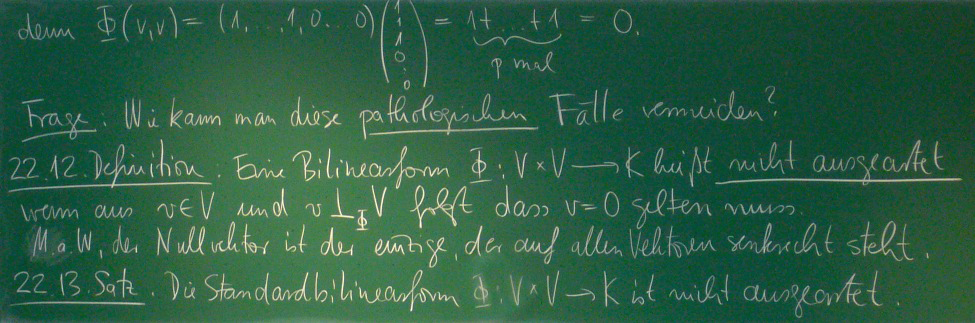 denn Φ(v,v) = (1,...1,0...0) (1 1 1 0 : 0) = 1+...+1 = 0,
p mal
Frage: Wie kann man diese pathologischen Fälle vermeiden?
22.12. Definition. Eine Bilinearform Φ: V×V → K heißt nicht ausgeartet
wenn aus v∈V und v ⊥_Φ V folgt dass v=0 gelten muss.
M.a.W, der Nullvektor ist der einzige, der auf allen Vektoren senkrecht steht.
22.13. Satz. Die Standardbilinearform Φ: V×V → K ist nicht ausgeartet.